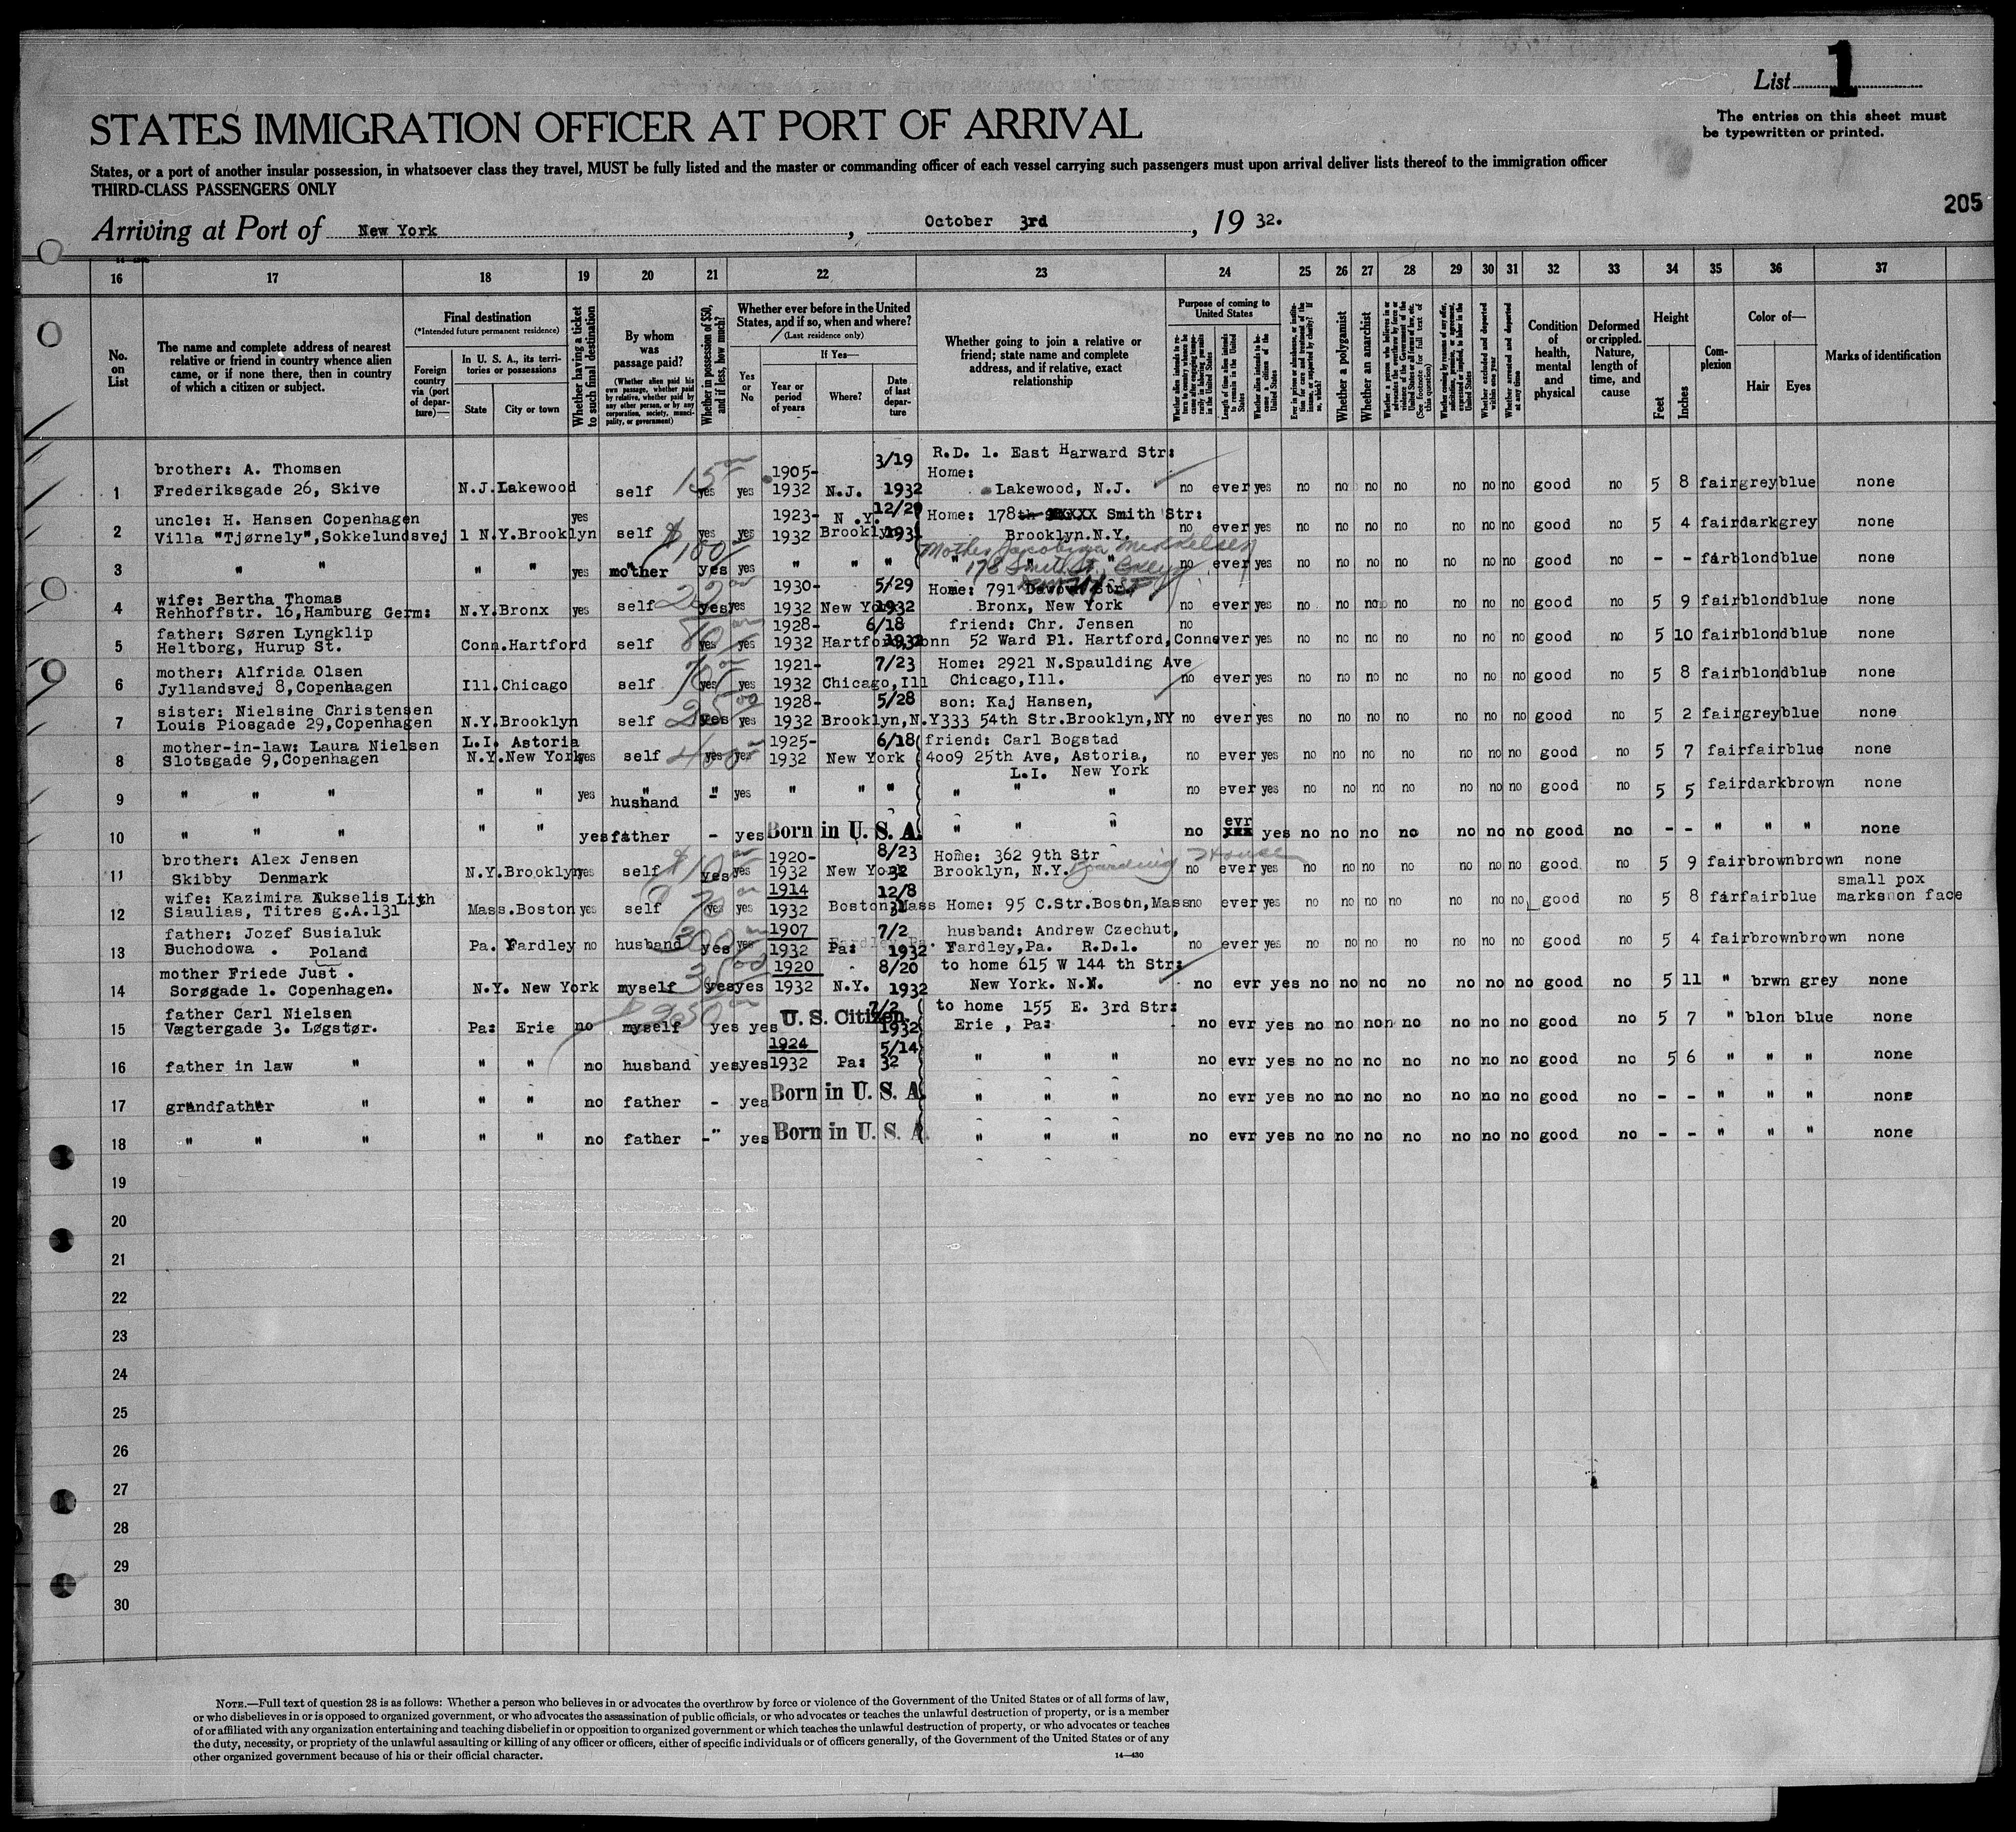 List 1
The entries on this sheet must
be typewritten or printed.
STATES IMMIGRATION OFFICER AT PORT OF ARRIVAL
States, or a port of another insular possession, in whatsoever class they travel, MUST be fully listed and the master or commanding officer of each vessel carrying such passengers must upon arrival deliver lists thereof to the immigration officer
THIRD-CLASS PASSENGERS ONLY
205
Arriving at Port of New York, October 3rd, 19 32.
16 17 18 19 20 21 22 23 24 25 26 27 28 29 30 31 32 33 34 35 36 37
No. on List
The name and complete address of nearest relative or friend in country whence alien came, or if none there, then in country of which a citizen or subject.
Final destination
(*Intended future permanent residence)
Foreign country via (port of departure)—
In U. S. A., its territories or possessions
State
City or town
Whether having a ticket to such final destination
By whom was passage paid?
(Whether alien paid his own passage, whether paid by relative, whether paid by any other person, or by any corporation, society, municipality, or government)
Whether in possession of $50, and if less, how much?
Whether ever before in the United States, and if so, when and where?
(Last residence only)
Yes or No
If Yes—
Year or period of years
Where?
Date of last departure
Whether going to join a relative or friend; state name and complete address, and if relative, exact relationship
Purpose of coming to United States
Length of time alien intends to remain in the United States
Whether alien intends to become a citizen of the United States
Whether a polygamist
Whether an anarchist
Whether excluded and deported within one year
Whether arrested and deported at any time
Condition of health, mental and physical
Deformed or crippled. Nature, length of time, and cause
Height
Feet
Inches
Complexion
Color of—
Hair
Eyes
Marks of identification
R.D. 1. East Harward Str:
brother: A. Thomsen 1905- 3/19 Home:
1 Frederiksgade 26, Skive N.J. Lakewood self yes yes 1932 N.J. 1932 Lakewood, N.J. no ever yes no no no no no no no good no 5 8 fair grey blue none
uncle: H. Hansen Copenhagen yes 1923- N.Y. 12/20 Home: 178 Smith Str:
2 Villa "Tjørnely", Sokkelundsvej 1 N.Y. Brooklyn self yes yes 1932 Brooklyn 1931 Brooklyn.N.Y. no ever yes no no no no no no no good no 5 4 fair dark grey none
Mother Jacobina Mikkelsen
3 " " " " yes mother yes yes " " " 178 Smith St. no ever yes no no no no no no no good no - - fair blond blue none
wife: Bertha Thomas 1930- 5/29 Home: 791
4 Rehhoffstr. 16, Hamburg Germ: N.Y. Bronx yes self yes yes 1932 New York 1932 Bronx, New York no ever yes no no no no no no no good no 5 9 fair blond blue none
father: Søren Lyngklip 1928- 6/18 friend: Chr. Jensen no
5 Heltborg, Hurup St. Conn. Hartford self yes yes 1932 Hartford, Conn 1932 52 Ward Pl. Hartford, Conn ever yes no no no no no no no good no 5 10 fair blond blue none
mother: Alfrida Olsen 1921- 7/23 Home: 2921 N.Spaulding Ave
6 Jyllandsvej 8, Copenhagen Ill. Chicago self yes yes 1932 Chicago, Ill Chicago, Ill. no ever yes no no no no no no no good no 5 8 fair blond blue none
sister: Nielsine Christensen 1928- 5/28 son: Kaj Hansen,
7 Louis Piosgade 29, Copenhagen N.Y. Brooklyn self yes yes 1932 Brooklyn, N.Y 333 54th Str.Brooklyn, NY no ever yes no no no no no no no good no 5 2 fair grey blue none
mother-in-law: Laura Nielsen L.I. Astoria 1925- 6/18 friend: Carl Bogstad
8 Slotsgade 9, Copenhagen N.Y. New York yes self yes yes 1932 New York 4009 25th Ave, Astoria, no ever yes no no no no no no no good no 5 7 fair fair blue none
L.I. New York
9 " " " " " yes husband - yes " " " " " " no ever yes no no no no no no no good no 5 5 fair dark brown none
evr
10 " " " " " yes father - yes Born in U. S. A. " " " no xxx yes no no no no no no no good no - - " " " none
brother: Alex Jensen 1920- 8/23 Home: 362 9th Str Boarding House
11 Skibby Denmark N.Y. Brooklyn yes self yes yes 1932 New York 32 Brooklyn, N.Y. no ever yes no no no no no no no good no 5 9 fair brown brown none
wife: Kazimira Aukselis Lith 1914 12/8 small pox
12 Siaulias, Titres g.A.131 Mass. Boston yes self 70 yes yes 1932 Boston, Mass 31 Home: 95 C.Str.Boson, Mass no ever yes no no no no no no no good no 5 8 fair fair blue marks on face
father: Jozef Susialuk 1907 7/2 husband: Andrew Czechut,
13 Buchodowa . Poland Pa. Yardley no husband yes yes 1932 Pa: 1932 Yardley, Pa. R.D.1. no ever yes no no no no no no no good no 5 4 fair brown brown none
mother Friede Just . 1920 8/20 to home 615 W 144 th Str:
14 Sorøgade 1. Copenhagen. N.Y. New York myself yes yes 1932 N.Y. 1932 New York. N.Y. no evr yes no no no no no no no good no 5 11 " brwn grey none
father Carl Nielsen 7/2 to home 155 E. 3rd Str:
15 Vægtergade 3. Løgstør. Pa: Erie no myself yes yes U. S. Citizen. 1932 Erie , Pa: no evr yes no no non no no no no good no 5 7 " blon blue none
1924 5/14
16 father in law " " " no husband yes yes 1932 Pa: 32 " " " no evr yes no no no no no no no good no 5 6 " " " none
17 grandfather " " " no father - yes Born in U. S. A. " " " no evr yes no no no no no no no good no - - " " " none
18 " " " " " no father -" yes Born in U. S. A. " " " no evr yes no no no no no no no good no - - " " " none
19
20
21
22
23
24
25
26
27
28
29
30
NOTE.—Full text of question 28 is as follows: Whether a person who believes in or advocates the overthrow by force or violence of the Government of the United States or of all forms of law,
or who disbelieves in or is opposed to organized government, or who advocates the assassination of public officials, or who advocates or teaches the unlawful destruction of property, or is a member
of or affiliated with any organization entertaining and teaching disbelief in or opposition to organized government or which teaches the unlawful destruction of property, or who advocates or teaches
the duty, necessity, or propriety of the unlawful assaulting or killing of any officer or officers, either of specific individuals or of officers generally, of the Government of the United States or of any
other organized government because of his or their official character.
14—430